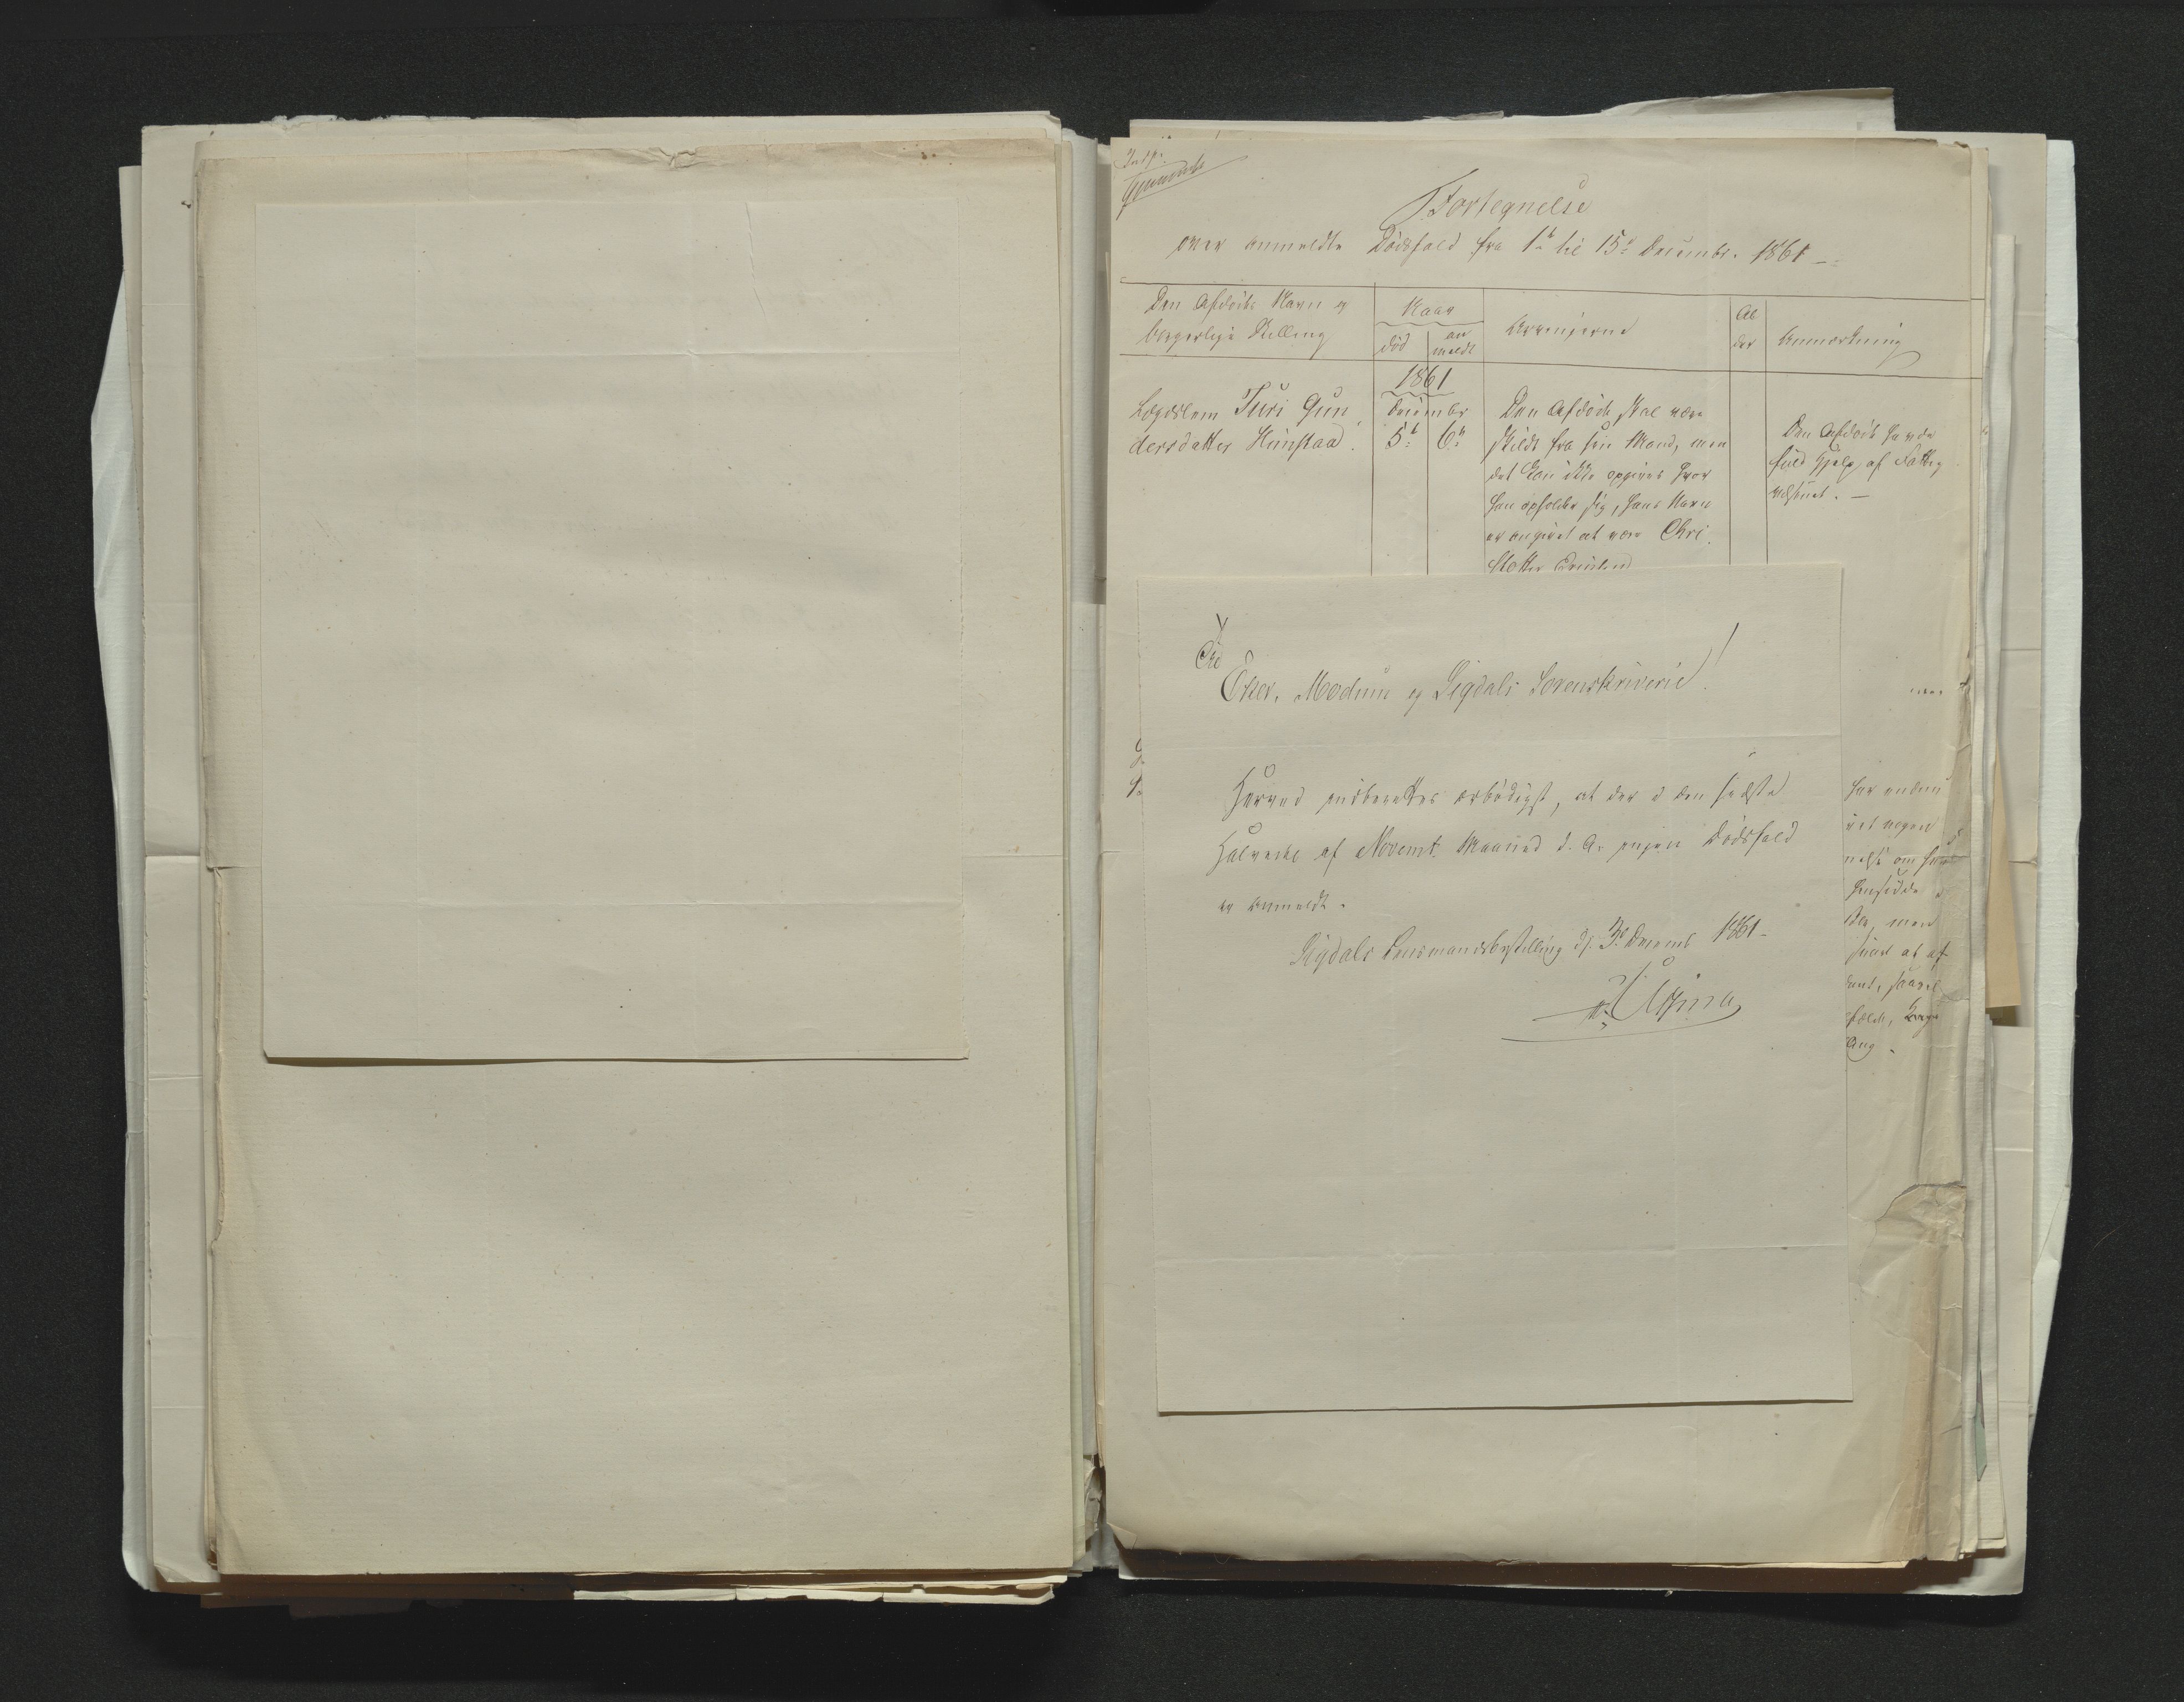 Fortegnelse
over anmeldte Dødsfald fra 1ste til 15de Decembr. 1861 —
Den Afdødes Navn og
borgerlige Stilling
Naar
død
an
meldt
Arvingerne
Al
der
Anmærkning
1861
Lægdslem Turi Gun
dersdatter Hunstad.
Decembr
5te
6te
Den Afdøde skal være
skildt fra sin Mand, men
det kan ikke opgives hvor
han opholder sig, hans Navn
er angivet at være Chri
stoffer
Den Afdøde havde
fuld Hjelp af Fattig
væsenet. —
Til
Eker, Modum og Sigdals Sorenskriverie!
Herved indberettes ærbødigst, at der i den sidste
Halvdel af Novembr. Maaned d. A. ingen Dødsfald
er anmeldt.
Sigdals Lensmandsbestilling d. 3de Decemb 1861 –
har endnu
vet nogen
nelse om
hensidde
men
fuld,